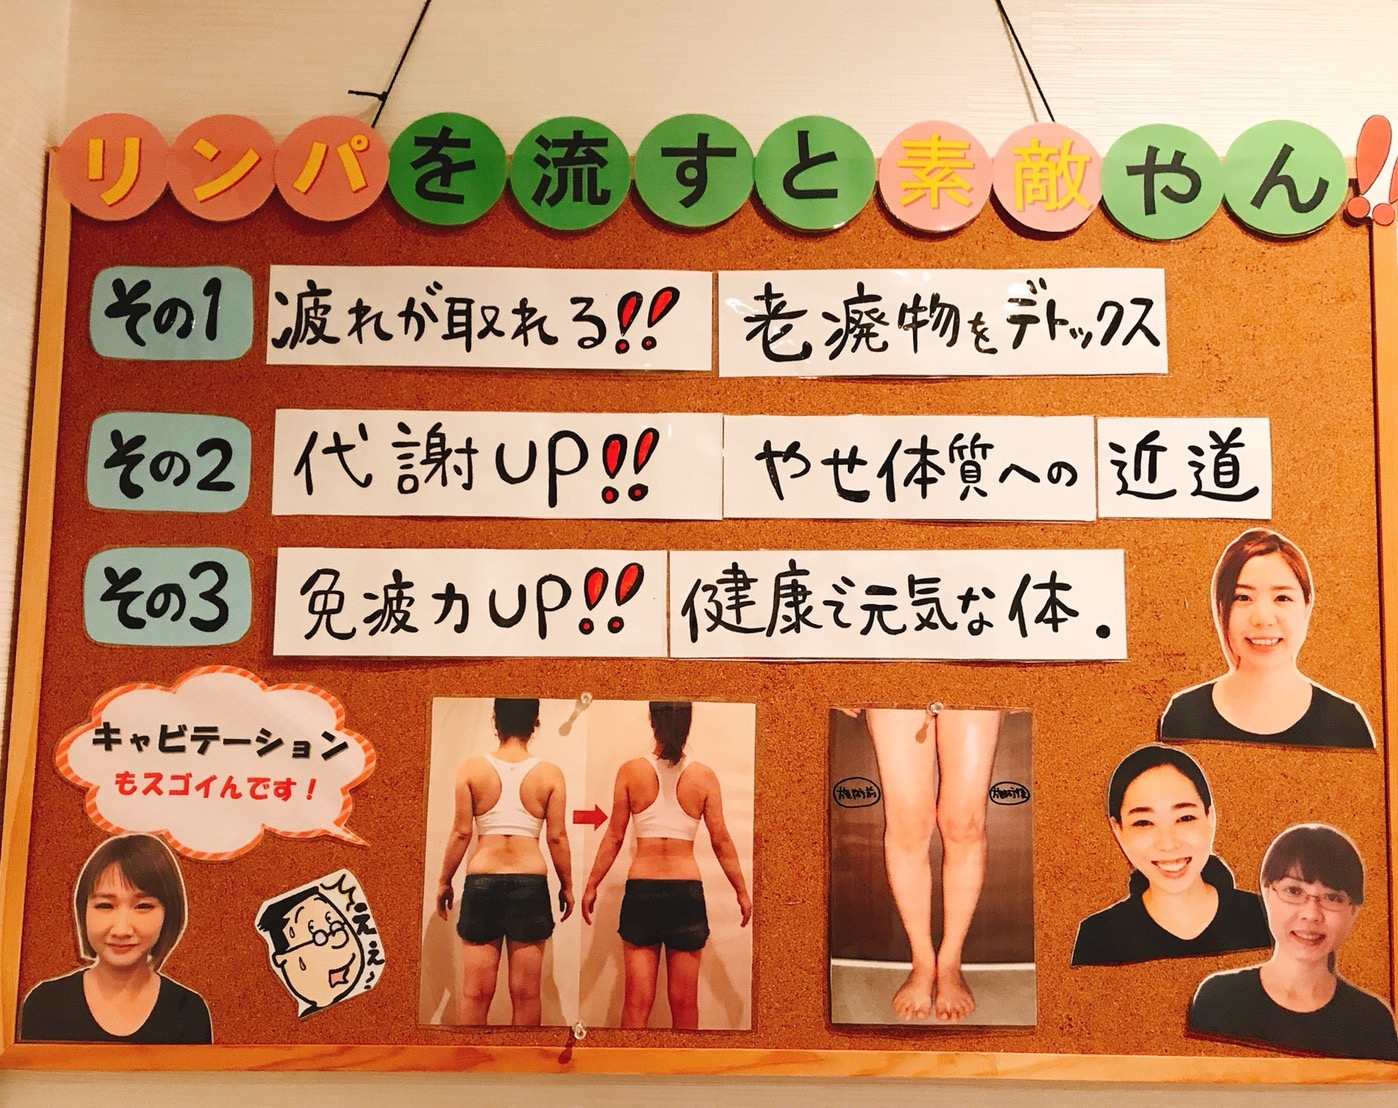 リンパを流すと素敵やん!!
その1 疲れが取れる!! 老廃物をデトックス
その2 代謝UP!! やせ体質への近道
その3 免疲力UP!! 健康で元気な体.
キャビテーション
もスゴイんです!
施術前 施術後